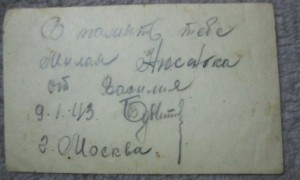 В память тебе
Милая Нюсачка
от Василия
9.1.43
г. Москва.